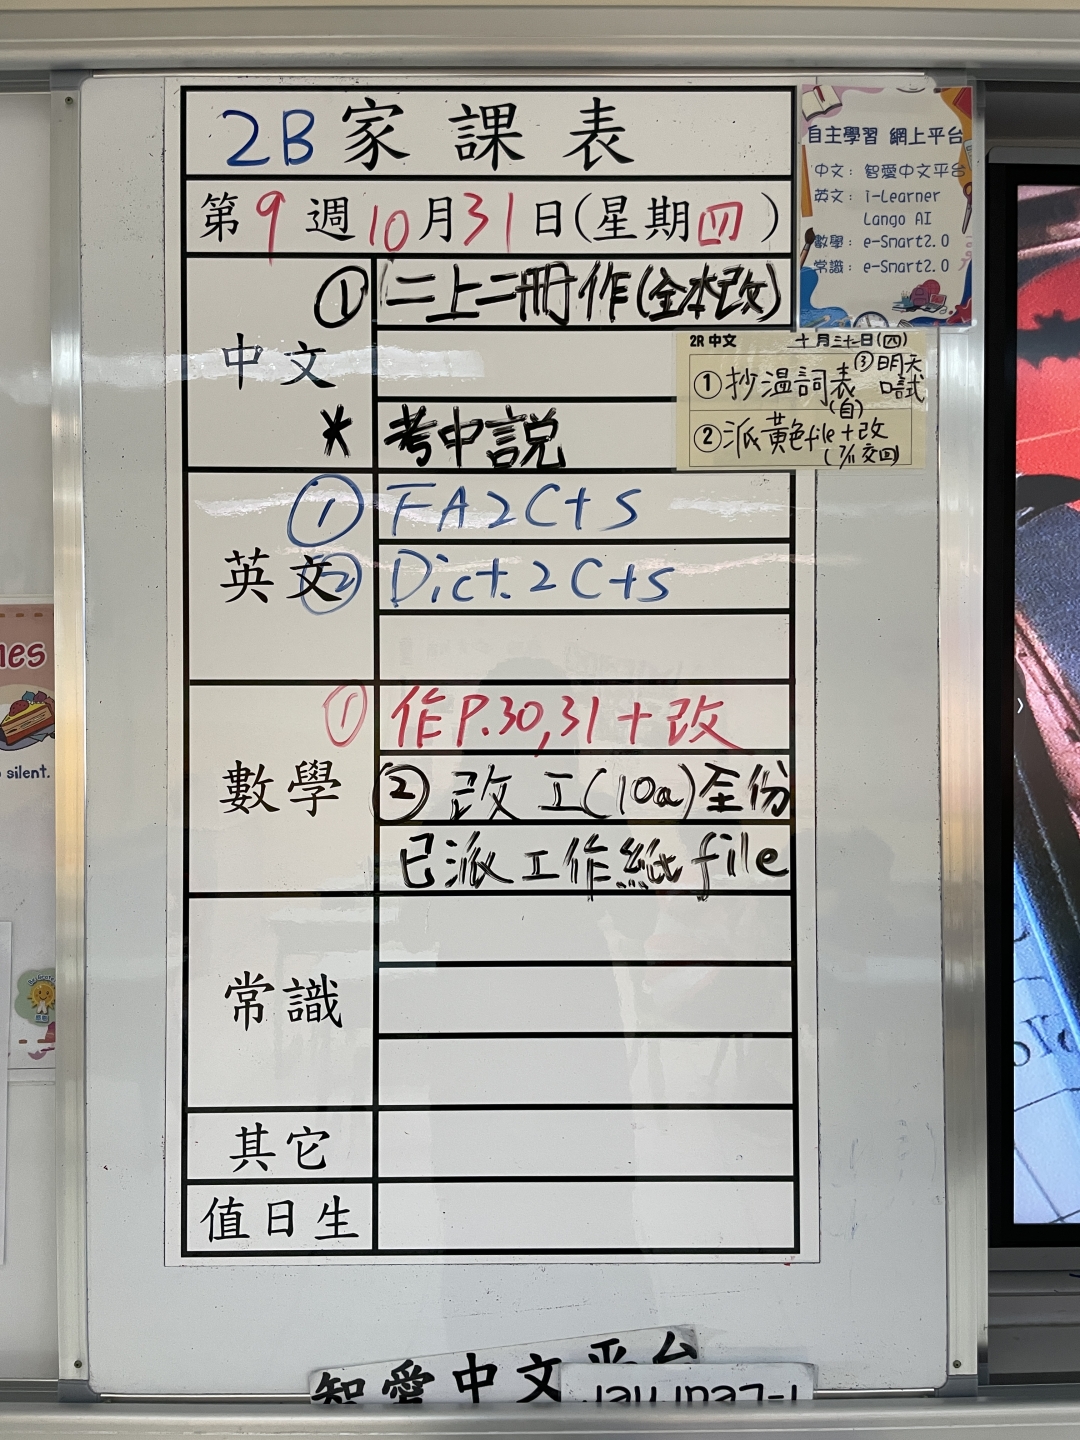 2B家課表
第9週10月31日(星期四)
中文
①二上二冊作(全本改)
* 考中説
英文
①FA2C+S
②Dict.2C+S
數學
①作P.30,31+改
②改工(10a)至份
已派工作紙file
常識
其它
值日生
自主學習 網上平台
中文：智愛中文平台
英文：i-Learner
Lango AI
數學：e-Smart2.0
常識：e-Smart2.0
2R中文 十月三十一日(四)
①抄溫詞表
(自)
③明天
口試
②派黃色file+改
智愛中文平台
i-Learner
silent.